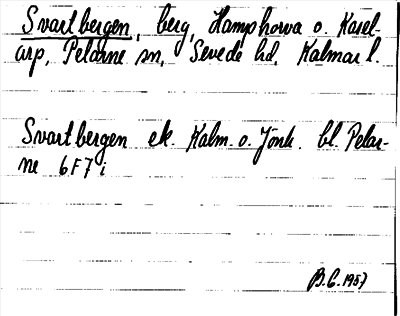 Svartbergen, berg, Hamphorva o. Kasel-
arp, Pelarne sn, Sevede hd, Kalmar l.
Svartbergen ek. Kalm. o. Jönk. bl. Pelar-
ne 6F7i
B.G. 1957